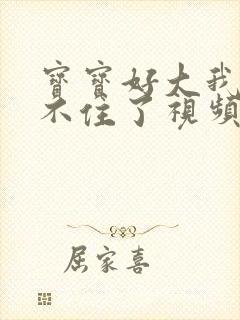 寶寶好大我
不住了視頻
屈家喜